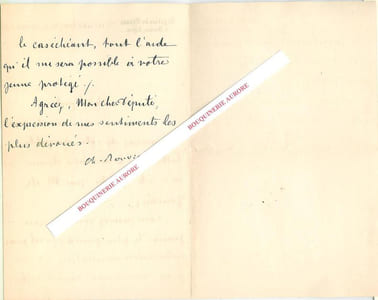 le cas échéant, tout l'aide
qu'il me sera possible à votre
jeune protégé /.
Agréez, Mon cher Député,
l'expression de mes sentiments les
plus dévoués.
Ch.
BOUQUINERIE AURORE
BOUQUINERIE AURORE
BOUQUINERIE AURORE